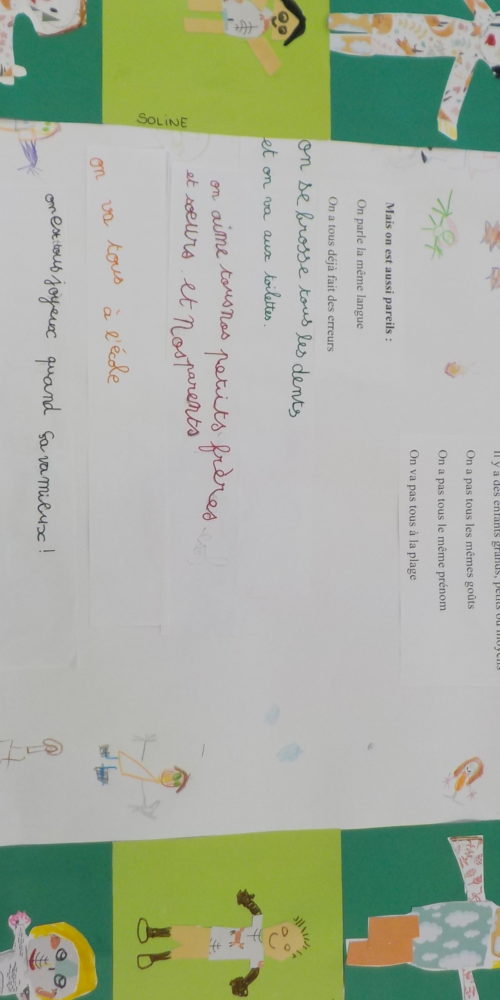 Il y a des enfants grands, petits ou moyens
On a pas tous les mêmes goûts
On a pas tous le même prénom
On va pas tous à la plage
Mais on est aussi pareils :
On parle la même langue
On a tous déjà fait des erreurs
on se brosse tous les dents
et on va aux toilettes.
on aime tous nos petits frères
et soeurs. et Nos parents
on va tous à l'école
on est tous joyeux quand sa va mieux !
SOLINE